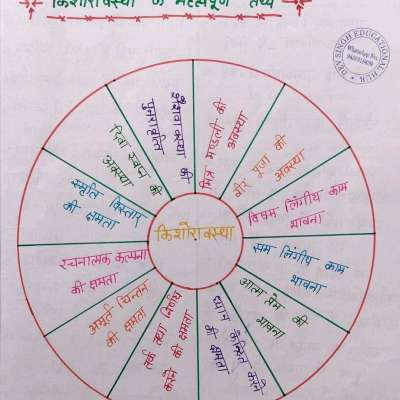 किशोरावस्था के महत्वपूर्ण तथ्य
DEV SINGH EDUCATIONAL HUB
WhatsApp No.
शैशवावस्था की
पुनरावृत्ति
मित्र मण्डली की
अवस्था
वीर पूजा की
अवस्था
विषम लिंगीय काम
भावना
सम लिंगीय काम
भावना
आत्म प्रेम की
भावना
ध्यान केन्द्रित करने
की क्षमता
तर्क तथा निर्णय
करने की क्षमता
अमूर्त चिन्तन
की क्षमता
रचनात्मक कल्पना
की क्षमता
स्मृति विस्तार
की क्षमता
दिवा स्वप्न की
अवस्था
किशोरावस्था